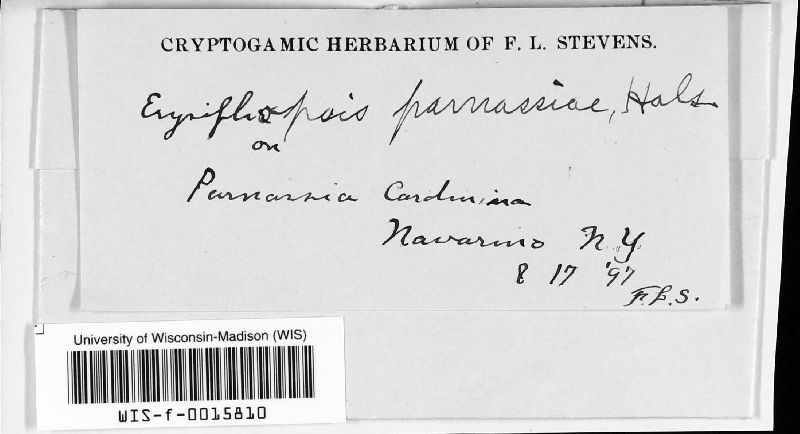 CRYPTOGAMIC HERBARIUM OF F. L. STEVENS.
Erysiphopsis parnassiae, Hals
on
Parnassia
Navarino N.Y.
8 17 '97
F.L.S.
University of Wisconsin-Madison (WIS)
WIS-f-0015810